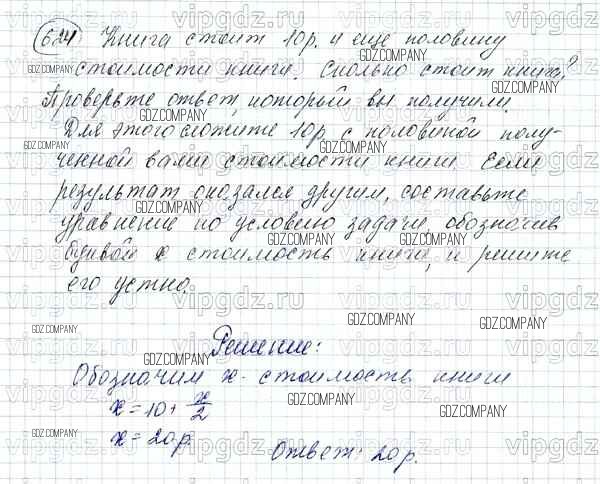 624 Книга стоит 10р. и еще половину
стоимости книги. Сколько стоит книга?
Проверьте ответ, который вы получили.
Для этого сложите 10р. с половиной полу-
ченной вами стоимости книги. Если
результат оказался другим, составьте
уравнение по условию задачи, обозначив
буквой x стоимость книги, и решите
его устно.
Решение:
Обозначим x - стоимость книги
x = 10 + x/2
x = 20р.
Ответ: 20р.